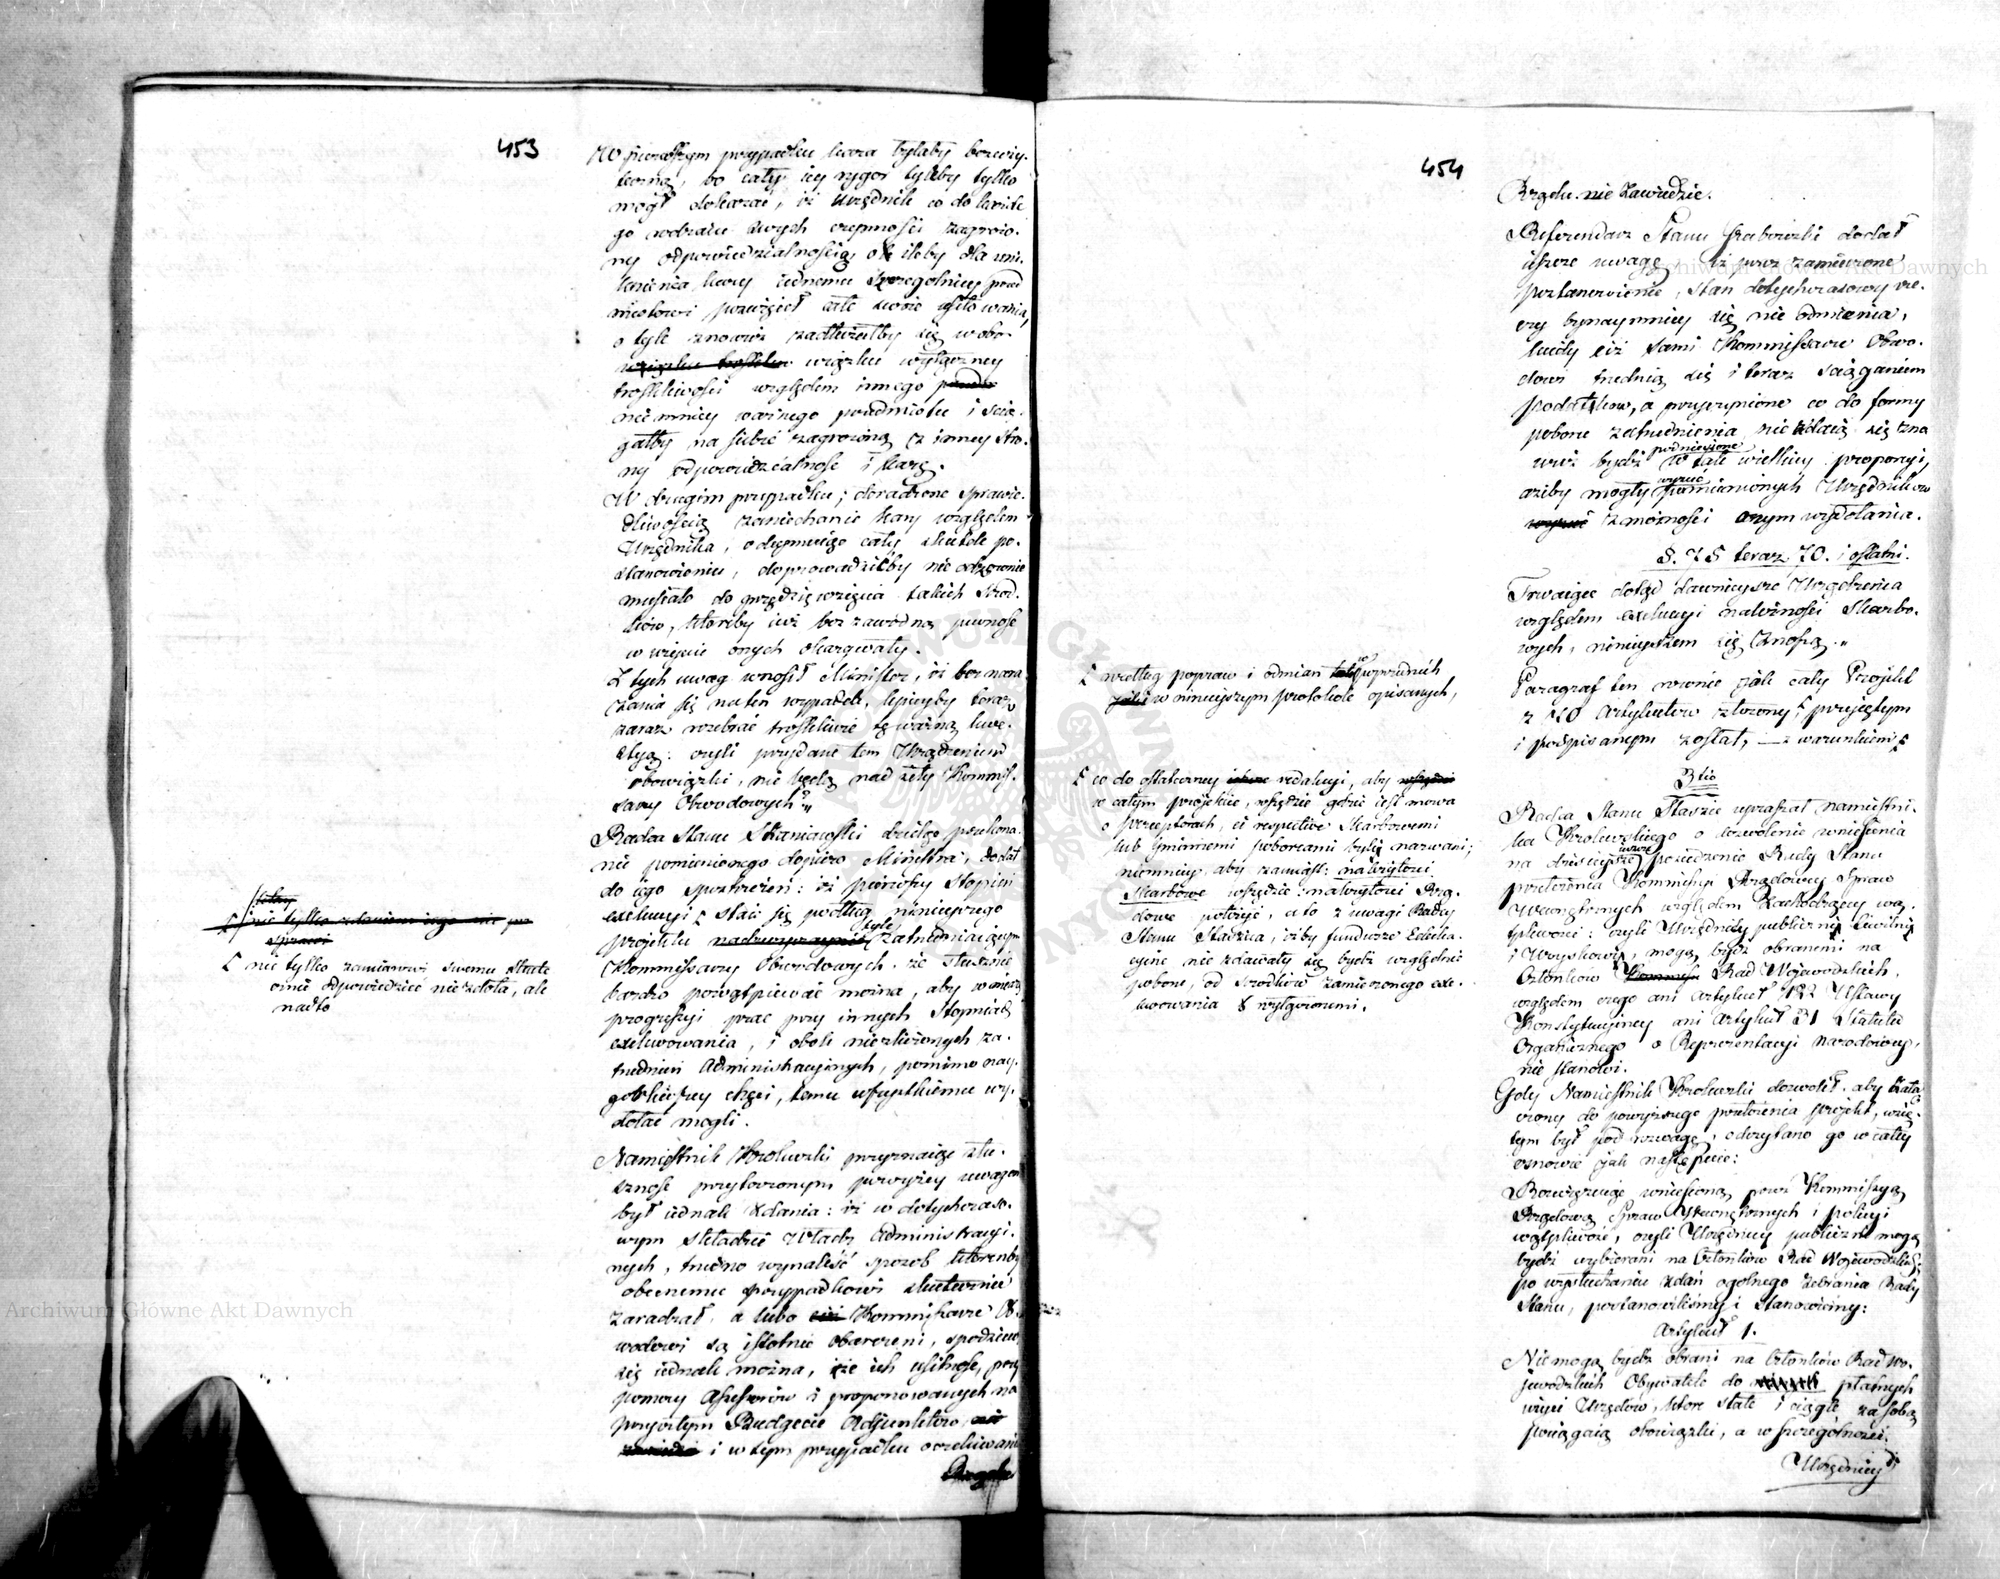 453
W pierwszym przypadku kara byłaby bezuży-
teczną, bo cały iey rygor tyleby tylko
mógł dokazać, iż Urzędnik co do każde-
go rodzaiu swych czynności zagrożo-
ny odpowiedzialnością o ile by dla uni-
knienia kary iednemu szczególniey przed
miotowi poświęcił całe swoie usiłowania,
o tyle znowuż zadłużałby się w obo-
wiązku wyłączney
troskliwości względem innego
nie mniey ważnego przedmiotu i ścią-
gałby na siebie zagrożoną z inney stro-
ny odpowiedzialność i karę.
W drugim przypadku; doradzone sprawie-
dliwością zaniechanie kary względem
Urzędnika, odeymuiąc cały skutek po-
stanowieniu, doprowadziłby nieodzownie
musiało do przedsięwzięcia takich środ-
ków, któreby iuż bezzawodną pewność
w użyciu onych okazywały.
Z tych uwag wnosił Minister, iż bez nara-
żania się na ten wypadek, lepieyby teraz
zaraz rozebrać troskliwie tę ważną kwe-
styą: czyli przydane tem Urządzeniem
obowiązki, nie będą nad siły Kommis-
sarzy Obwodowych?"
Radca Stanu dzieląc przekona-
nie pomienionego dopiero Ministra, dodał
do iego spostrzeżeń: iż pierwszy stopień
exekucyi [ staie się podług ninieyszego
projektu tyle zatrudniaiącym
Kommissarzy Obwodowych, że słusznie
bardzo powątpiewać można, aby w miarę
progressyi prac przy innych stopniach
exekwowania, i obok niezliczonych za-
trudnień Administracyinych, pomimo nay-
gorliwszey chęci, temu wszystkiemu wy-
dołać mogli.
[ nie tylko zamiarowi swemu
odpowiedzieć nie zdoła, ale
nadto
Namiestnik Krolewski przyznaiąc słu-
szność przytoczonym powyżey uwagom
był iednak zdania: iż w dotychczaso-
wym składzie Władz Administracyi-
nych, trudno wynaleść sposób którenby
obecnemu przypadkowi skutecznie
zaradzał, a lubo Kommissarze Ob-
wodowi są istotnie obarczeni, spodziewać
się iednak można, że ich usilność, przy
pomocy Assessorów i proponowanych na
przyszłym Budgecie Adjunktów,
i w tym przypadku oczekiwania
Rządu
454
Rządu nie zawiedzie.
Referendarz Stanu dodał
ieszcze uwagę, iż przez zamierzone
postanowienie, stan dotychczasowy rze-
czy bynaymniey się nie odmienia,
kiedy ciż sami Kommissarze Obwo-
dowi trudnią się i teraz ściąganiem
podatków, a przyczynione co do formy
poboru zatrudnienia nie zdaią się zno-
wuż bydź podniesione w tak wielkiey proporcyi,
ażeby mogły wyzuć pomienionych Urzędników
z możności onym wydołania.
§. 75 teraz 70. i ostatni.
Trwaiące dotąd dawnieysze Urządzenia
względem exekucyi należności Skarbo-
wych, ninieyszem się znoszą."
Paragraf ten równie jak cały Projekt
z 70 Artykułów złożony, przyiętym
i podpisanym został, — z warunkiem [
[ według popraw i odmian w poprzednich
w ninieyszym protokole opisanych,
[ co do ostateczney redakcyi, aby
w całym projekcie, wszędzie gdzie iest mowa
o perceptorach, ci respective Skarbowemi
lub gminnemi poborcami byli nazwani;
niemniey aby zamiast: należytości
Skarbowe wszędzie: należytości Rzą-
dowe położyć, a to z uwagi Radcy
Stanu Staszica, iżby fundusze Eduka-
cyine nie zdawały się bydź względnie
poboru, od środków zamierzonego exe-
kwowania wyłączonemi.
3tio
Radca Stanu Staszic upraszał Namiestni-
ka Krolewskiego o dozwolenie wniesienia
na dzisieysze posiedzenie Rady Stanu
przełożenia Kommissyi Rządowey Spraw
Wewnętrznych względem zachodzącey wąt-
pliwości: czyli Urzędnicy publiczni cywilni
i Woyskowi, mogą bydź obranemi na
Członków Rad Wojewodzkich,
względem czego ani Artykuł 122 Ustawy
Konstytucyiney ani Artykuł 21 Statutu
Organicznego o Reprezentacyi Narodowey,
nie stanowi.
Gdy Namiestnik Krolewski dozwolił, aby załą-
czony do powyższego przełożenia projekt, wzię-
tym był pod rozwagę, odczytano go w całey
osnowie jak następuie:
Rozwiązuiąc wniesioną przez Kommissyą
Rządową Spraw Wewnętrznych i policyi
wątpliwość, czyli Urzędnicy publiczni mogą
bydź wybierani na Członków Rad Wojewodzkich;
po wysłuchaniu zdań ogólnego zebrania Rady
Stanu, postanowiliśmy i stanowimy:
Artykuł 1.
Nie mogą bydź obrani na Członków Rad Wo-
jewodzkich Obywatele do płatnych
wzięci Urzędów, które stałe i ciągłe za sobą
pociągaią obowiązki, a w szczególności:
Urzędnicy
Archiwum Główne Akt Dawnych
Archiwum Główne Akt Dawnych